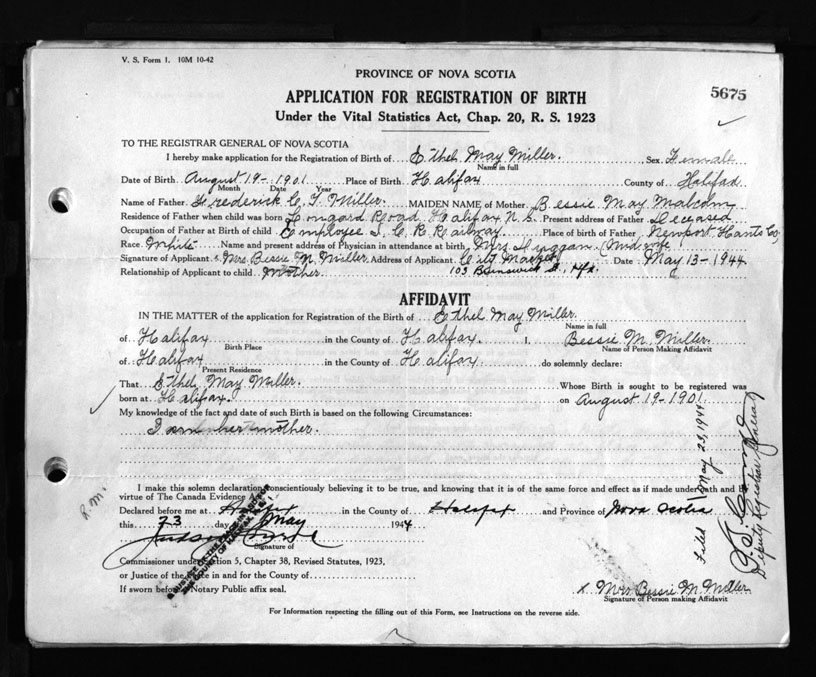 V. S. Form 1. 10M 10-42
PROVINCE OF NOVA SCOTIA
5675
APPLICATION FOR REGISTRATION OF BIRTH
Under the Vital Statistics Act, Chap. 20, R. S. 1923
TO THE REGISTRAR GENERAL OF NOVA SCOTIA
I hereby make application for the Registration of Birth of Ethel May Miller. Sex Female
Name in full
Date of Birth August 19 - 1901 Place of Birth Halifax County of Halifax
Month Date Year
Name of Father Frederick C. Miller. MAIDEN NAME of Mother Bessie May Malcom
Residence of Father when child was born Longard Road, Halifax N.S. Present address of Father Deceased
Occupation of Father at Birth of child Employee I. C. R. Railway. Place of birth of Father Newport Hants Co,
Race White Name and present address of Physician in attendance at birth Mrs Duggan. Midwife
Signature of Applicant Mrs. Bessie M. Miller Address of Applicant City Market Date May 13 - 1944
103 Brunswick St, Hfx.
Relationship of Applicant to child Mother
AFFIDAVIT
IN THE MATTER of the application for Registration of the Birth of Ethel May Miller.
Name in full
of Halifax in the County of Halifax. I, Bessie M. Miller.
Birth Place Name of Person Making Affidavit
of Halifax in the County of Halifax do solemnly declare:
Present Residence
That Ethel May Miller. Whose Birth is sought to be registered was
born at Halifax. on August 19 - 1901
My knowledge of the fact and date of such Birth is based on the following Circumstances:
I am her mother.
I make this solemn declaration conscientiously believing it to be true, and knowing that it is of the same force and effect as if made under oath and by
virtue of The Canada Evidence Act.
Declared before me at Halifax in the County of Halifax and Province of Nova Scotia
this 23 day May 1944
Signature of
Commissioner under Section 5, Chapter 38, Revised Statutes, 1923,
or Justice of the Peace in and for the County of
If sworn before Notary Public affix seal.
x Mrs Bessie M. Miller
Signature of Person making Affidavit
For Information respecting the filling out of this Form, see Instructions on the reverse side.
R.M.
Filed May 23, 1944
Deputy Registrar General
A JUSTICE OF THE PEACE IN AND FOR
THE COUNTY OF HALIFAX, N.S.